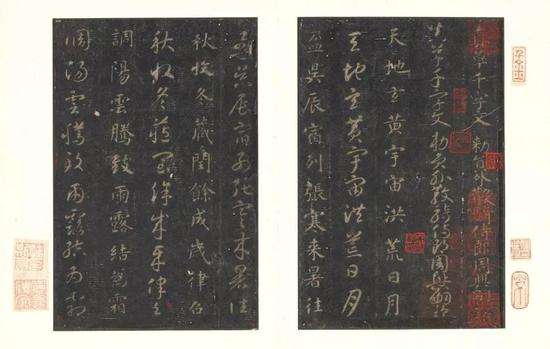 真草千字文 勅員外散騎侍郎周興嗣次韻
真草千字文 勅員外散騎侍郎周興嗣次韻
天地玄黃宇宙洪荒日月
天地玄黃宇宙洪荒日月
盈昃辰宿列張寒来暑往
盈昃辰宿列張寒来暑往
秋收冬藏閏餘成歲律呂
秋收冬藏閏餘成歲律呂
調陽雲騰致雨露結為霜
調陽雲騰致雨露結為霜